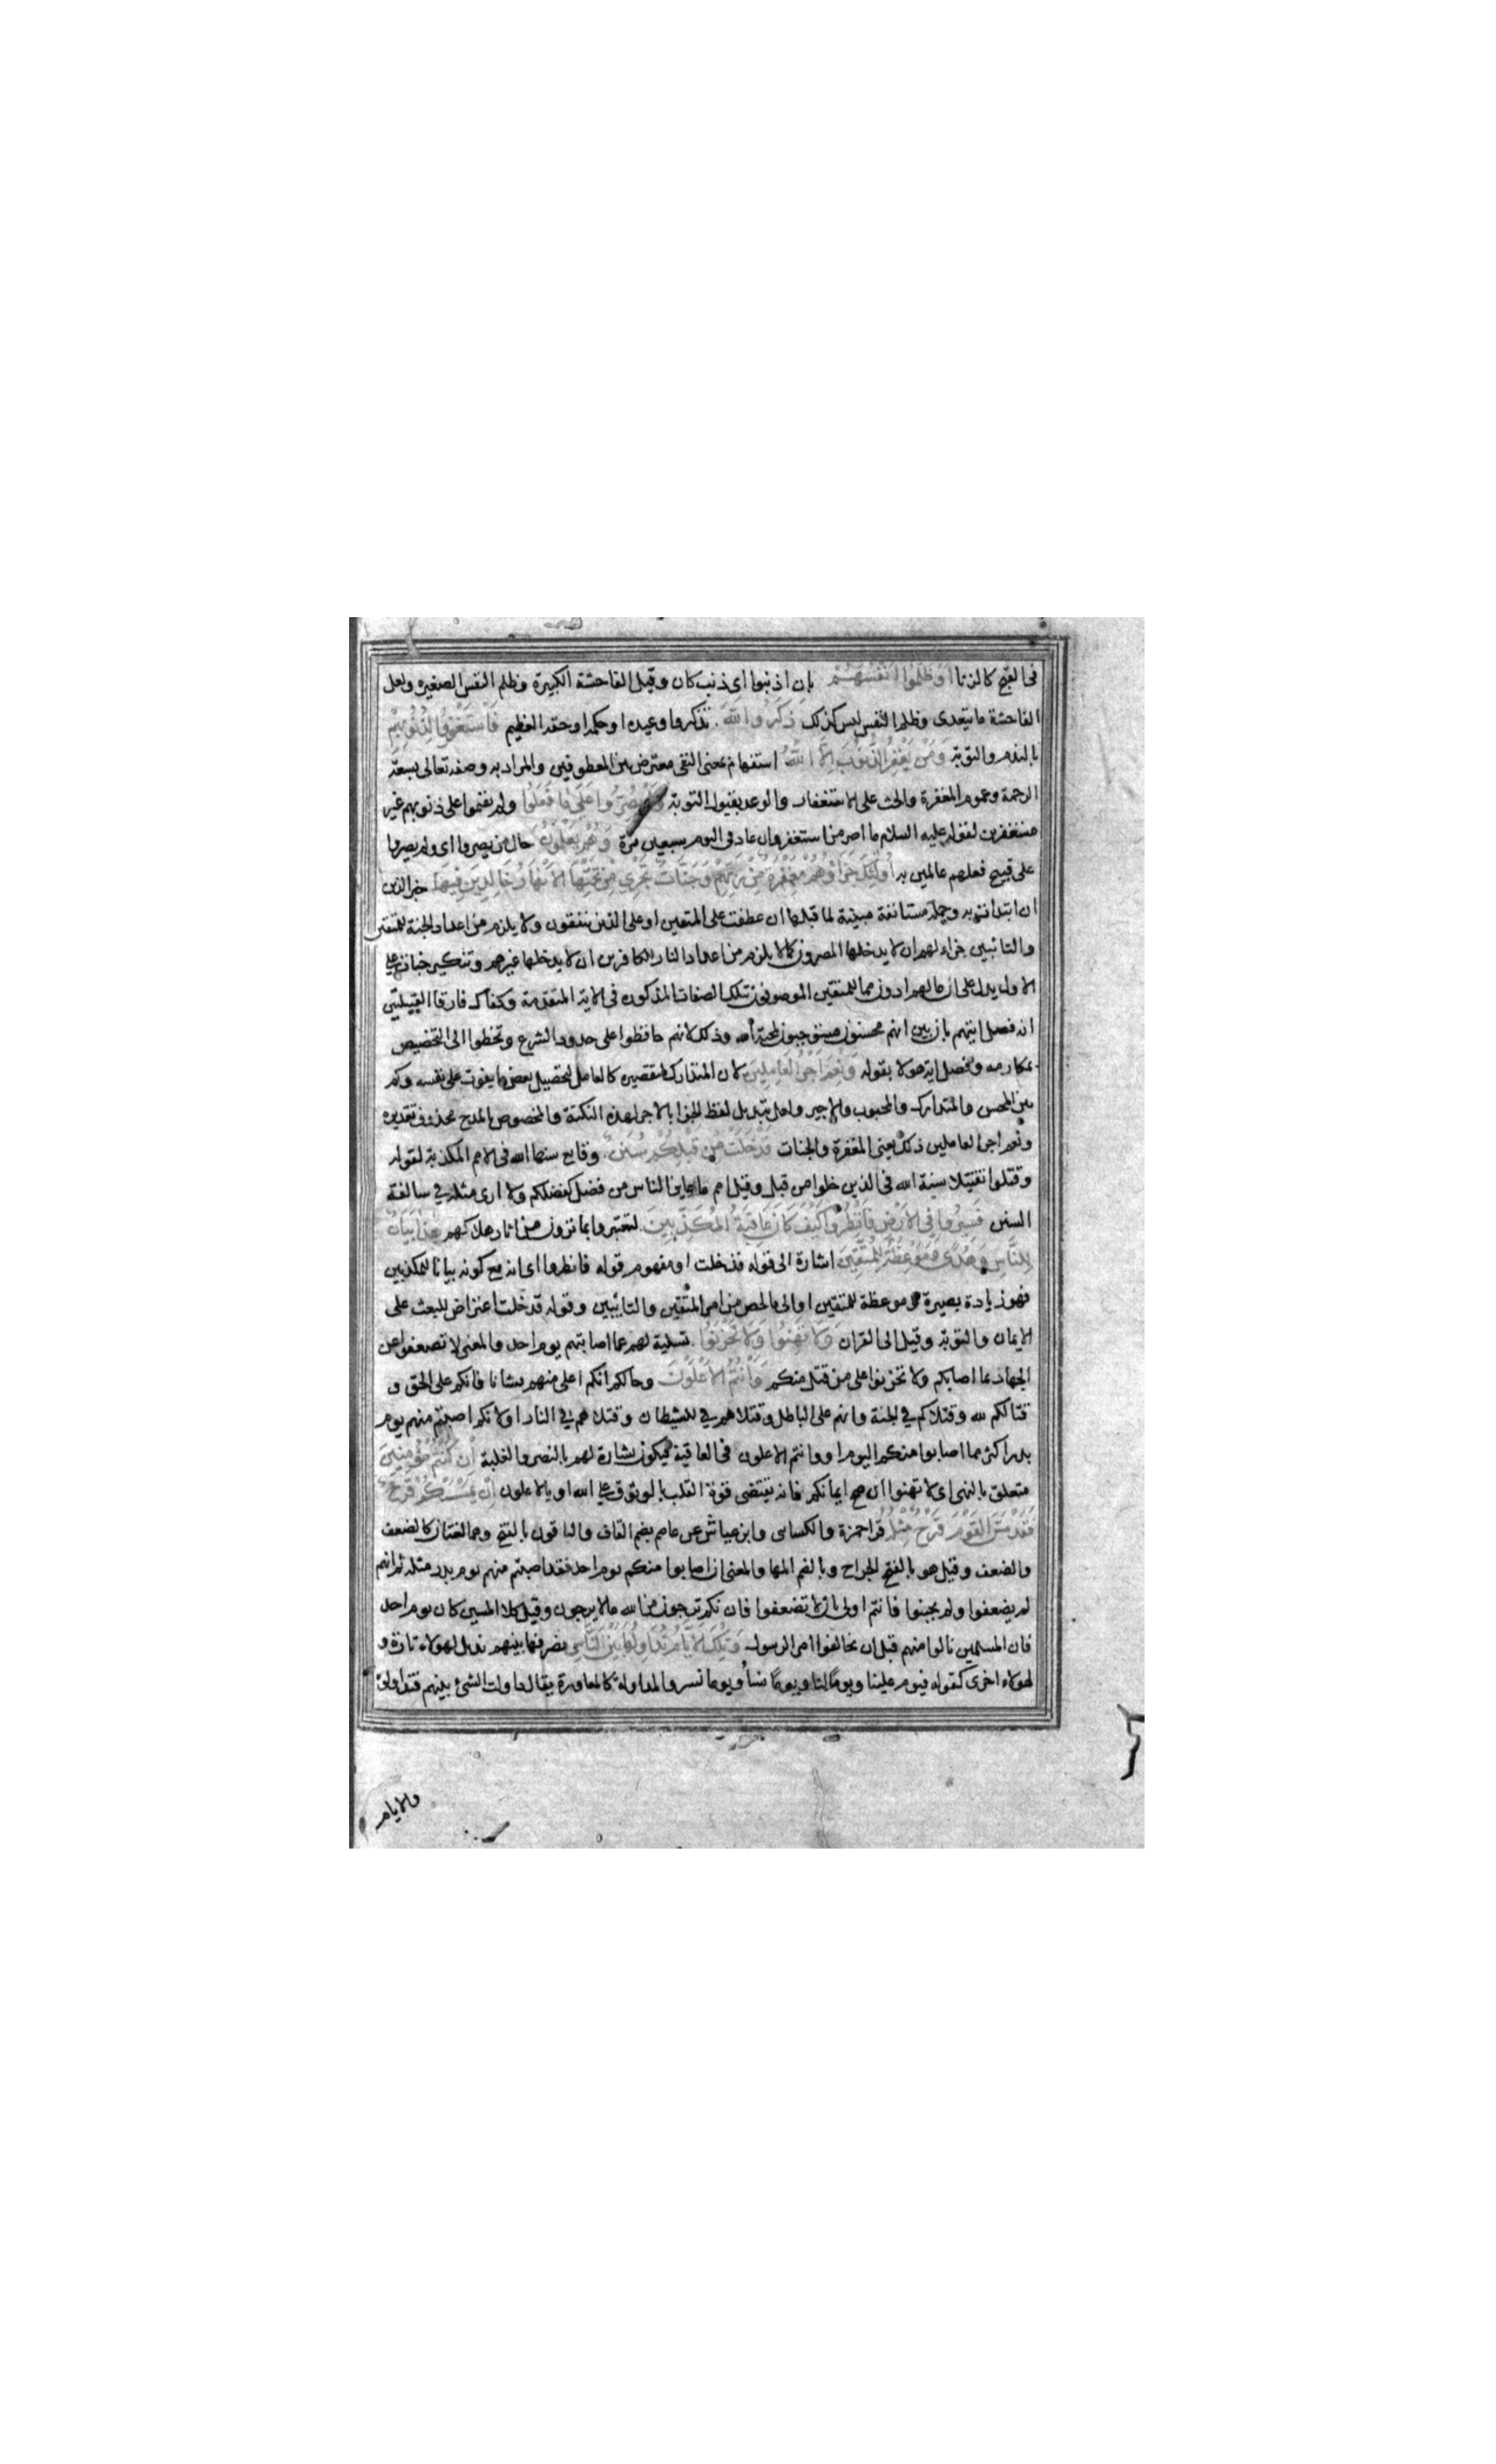 فى القبح كالزنا اَوْظَلَمُوا اَنْفُسَهُمْ بان اذنبوا اى ذنب كان وقيل الفاحشة الكبيرة وظلم النفس الصغيره ولعل
الفاحشة ما يتعدى وظلم النفس ليس كذلك ذَكَرُوا اللهَ تذكروا وعيده او حكمه او حقه العظيم فَاسْتَغْفَرُوا لِذُنُوبِهِمْ
بالندم والتوبة وَمَنْ يَغْفِرُ الذُّنُوبَ اِلَّا اللهُ استفهام بمعنى النفى معترض بين المعطوفين والمراد به وصفه تعالى بسعة
الرحمة وعموم المغفرة والحث على الاستغفار والوعد بقبول التوبة وَلَمْ يُصِرُّوا عَلَى مَا فَعَلُوا ولم يقيموا على ذنوبهم غير
مستغفرين لقوله عليه السلام ما اصر من استغفر وان عاد فى اليوم سبعين مرة وَهُمْ يَعْلَمُونَ حال من يصروا اى ولم يصروا
على قبيح فعلهم عالمين به اُولَئِكَ جَزَاؤُهُمْ مَغْفِرَةٌ مِنْ رَبِّهِمْ وَجَنَّاتٌ تَجْرِي مِنْ تَحْتِهَا الْاَنْهَارُ خَالِدِينَ فِيهَا خبر الذين
ان ابتدات به وجملة مستانفة مبينة لما قبلها ان عطفت على المتقين او على الذين ينفقون ولا يلزم من اعداد الجنة للمتقين
والتائبين جزاء لهم ان لا يدخلها المصرون كما لا يلزم من اعداد النار للكافرين ان لا يدخلها غيرهم وتنكير جنات على
الاول يدل على ان ما لهم ادون مما للمتقين الموصوفين بتلك الصفات المذكوره فى الاية المتقدمة وكفاك فارقا القبيلتين
انه فصل ايتهم بان بين انهم محسنون مستوجبون لمحبة الله وذلك لانهم حافظوا على حدود الشرع وتخطوا الى التخصيص
بمكارمه وفصل اية هولا بقوله وَنِعْمَ اَجْرُ الْعَامِلِينَ لان المتدارك لتقصيره كالعامل لتحصيل بعض ما يفوت على نفسه وكم
بين المحسن والمتدارك والمحبوب والاجير ولعل تبديل لفظ الجزا بالاجر لهذه النكتة والمخصوص بالمدح محذوف تقديره
ونعم اجر العاملين ذلك يعنى المغفرة والجنات قَدْ خَلَتْ مِنْ قَبْلِكُمْ سُنَنٌ وقايع سنها الله فى الامم المكذبة لقوله
وقتلوا تقتيلا سنة الله فى الذين خلوا من قبل وقيل امم ما عاين الناس من فضل كفضلكم ولا ارى مثله فى سالفة
السنن فَسِيرُوا فِي الْاَرْضِ فَانْظُرُوا كَيْفَ كَانَ عَاقِبَةُ الْمُكَذِّبِينَ لتعتبروا بما ترون من اثار هلاكهم هَذَا بَيَانٌ
لِلنَّاسِ وَهُدًى وَمَوْعِظَةٌ لِلْمُتَّقِينَ اشارة الى قوله قد خلت او مفهوم قوله فانظروا اى انه مع كونه بيانا للمكذبين
فهو زيادة بصيرة وموعظة للمتقين او الى ما لخص من امر المتقين والتايبين وقوله قد خلت اعتراض للبعث على
الايمان والتوبة وقيل الى القران وَلَا تَهِنُوا وَلَا تَحْزَنُوا تسلية لهم عما اصابتهم يوم احد والمعنى لا تضعفوا عن
الجهاد بما اصابكم ولا تحزنوا على من قتل منكم وَاَنْتُمُ الْاَعْلَوْنَ وحالكم انكم اعلى منهم شانا فانكم على الحق و
قتالكم لله وقتلاكم في الجنة وانهم على الباطل وقتلاهم في للشيطان وقتلاهم في النار او لانكم اصبتم منهم يوم
بدر اكثر مما اصابوا منكم اليوم او وانتم الاعلون فى العاقبة فيكون بشارة لهم بالنصر والغلبة اِنْ كُنْتُمْ مُؤْمِنِينَ
متعلق بالنهى اى لا تهنوا ان صح ايمانكم فانه يقتضى قوة القلب بالوثوق على الله او بالاعلون اِنْ يَمْسَسْكُمْ قَرْحٌ
فَقَدْ مَسَّ الْقَوْمَ قَرْحٌ مِثْلُهُ قرا حمزة والكسائى وابن عياش عن عاصم بضم القاف والباقون بالفتح وهما لغتان كالضعف
والضعف وقيل هو بالفتح الجراح وبالضم المها والمعنى ان اصابوا منكم يوم احد فقد اصبتم منهم يوم بدر مثله ثم انهم
لم يضعفوا ولم يجبنوا فانتم اولى بان لا تضعفوا فانكم ترجون من الله ما لا يرجون وقيل كلا المسين كان يوم احد
فان المسلمين نالوا منهم قبل ان يخالفوا امر الرسول وَتِلْكَ الْاَيَّامُ نُدَاوِلُهَا بَيْنَ النَّاسِ نصرفها بينهم ندل لهولاء تارة و
لهولاء اخرى كقوله فيوم علينا ويوما لنا ويوما نسأ ويوما نسر والمداولة كالمعاورة يقال داولت الشئ بينهم فتداولوه
والايام